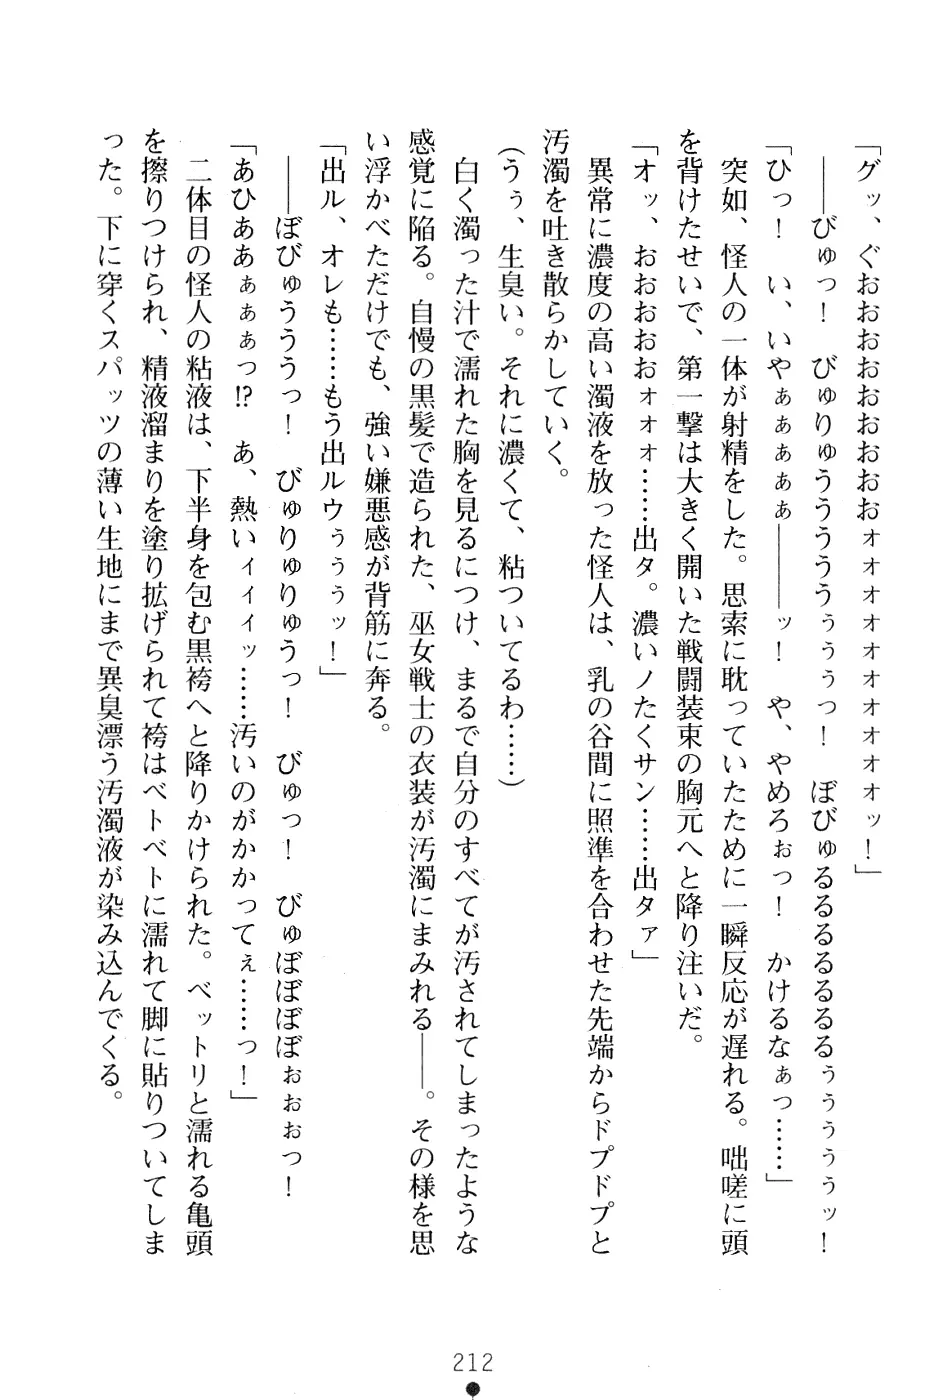 「グッ、ぐおおおおおおおおォォォォォォォォッ！」
――びゅっ！　びゅりゅうううううぅぅぅっ！　ぼびゅるるるるるるぅぅぅぅぅッ！
「ひっ！　い、いやぁぁぁぁぁ――――ッ！　や、やめろぉっ！　かけるなぁっ……」
突如、怪人の一体が射精をした。思索に耽っていたために一瞬反応が遅れる。咄嗟に頭
を背けたせいで、第一撃は大きく開いた戦闘装束の胸元へと降り注いだ。
「オッ、おおおおおォォォ……出タ。濃いノたくサン……出タァ」
異常に濃度の高い濁液を放った怪人は、乳の谷間に照準を合わせた先端からドプドプと
汚濁を吐き散らかしていく。
（うぅ、生臭い。それに濃くて、粘ついてるわ……）
白く濁った汁で濡れた胸を見るにつけ、まるで自分のすべてが汚されてしまったような
感覚に陥る。自慢の黒髪で造られた、巫女戦士の衣装が汚濁にまみれる――。その様を思
い浮かべただけでも、強い嫌悪感が背筋に奔る。
「出ル、オレも……もう出ルウぅぅぅッ！」
――ぼびゅうううっ！　びゅりゅりゅうっ！　びゅっ！　びゅぼぼぼぼぉぉぉっ！
「あひああぁぁぁっ!?　あ、熱いィィィッ……汚いのがかかってぇ……っ！」
二体目の怪人の粘液は、下半身を包む黒袴へと降りかけられた。ベットリと濡れる亀頭
を擦りつけられ、精液溜まりを塗り拡げられて袴はベトベトに濡れて脚に貼りついてしま
った。下に穿くスパッツの薄い生地にまで異臭漂う汚濁液が染み込んでくる。
212